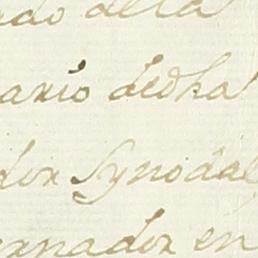 do della
ario dedha
dor Synodal
ernador en